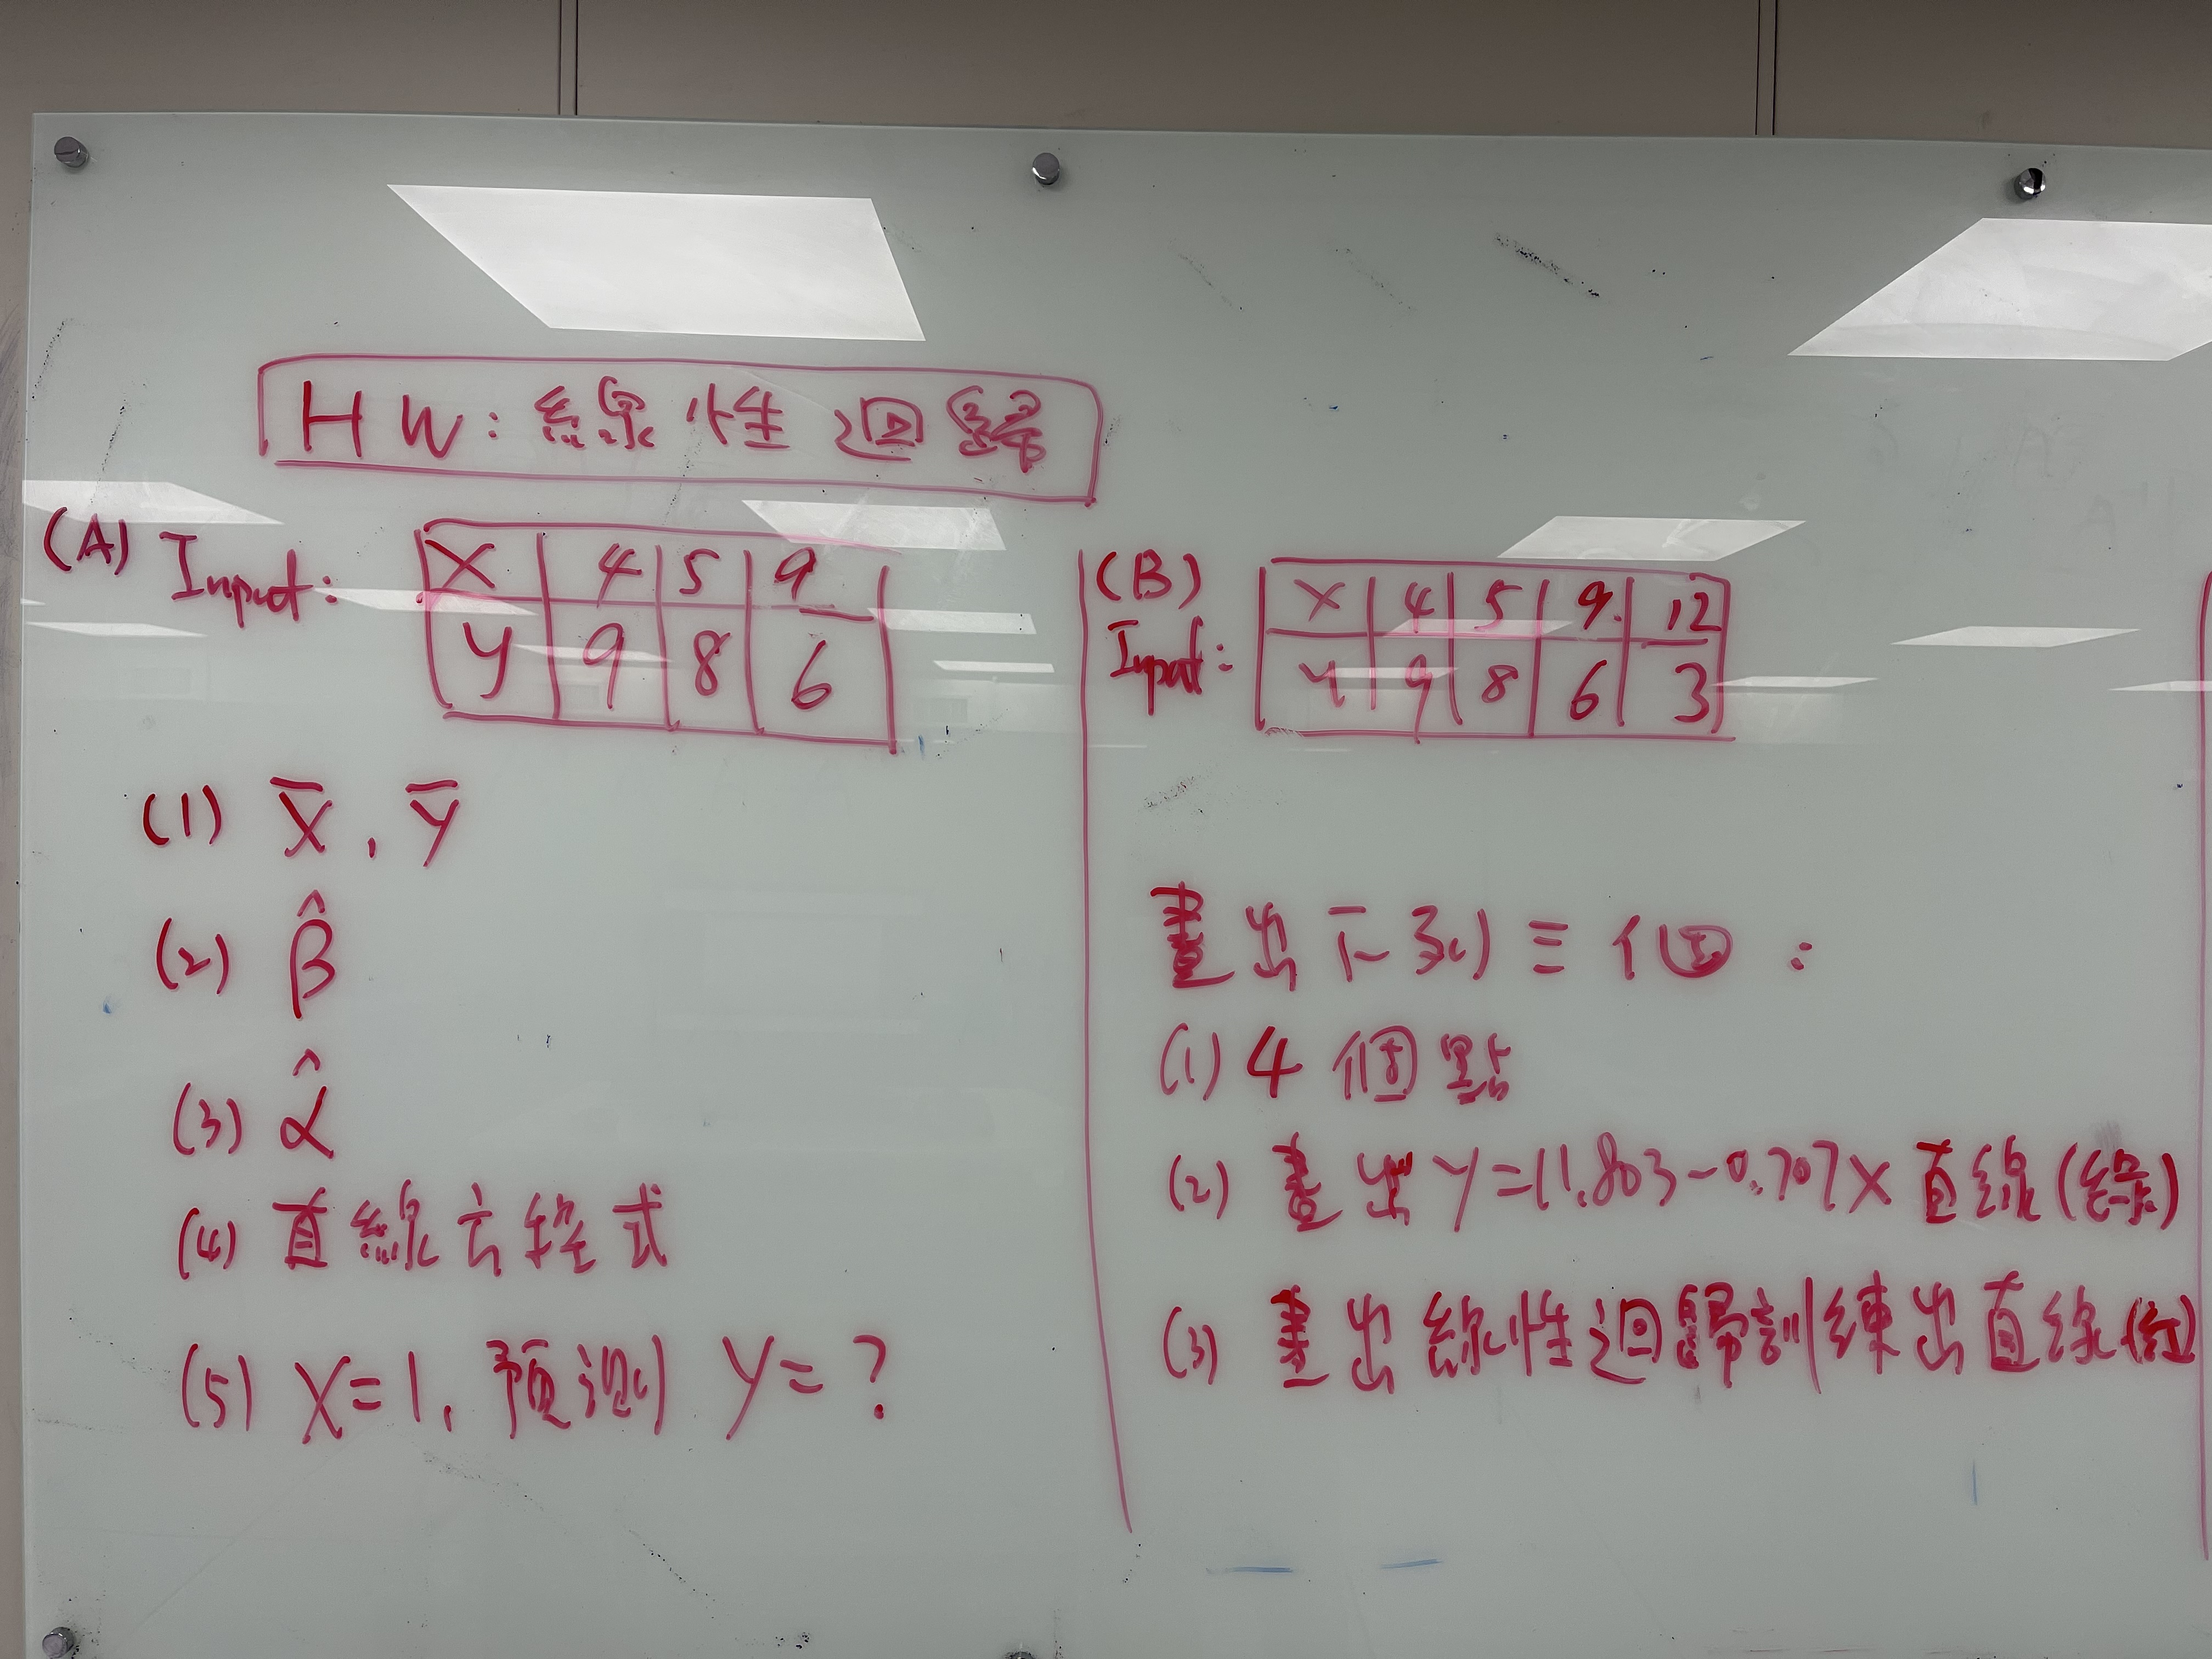 HW: 線性迴歸
(A) Input:
X 4 5 9
y 9 8 6
(1) X̄, ȳ
(2) β̂
(3) α̂
(4) 直線方程式
(5) X=1, 預測 y=?
(B)
Input:
X 4 5 9 12
y 9 8 6 3
畫出下列三個:
(1) 4 個點
(2) 畫出 y=11.803-0.707X 直線(綠)
(3) 畫出線性迴歸訓練出直線(紅)